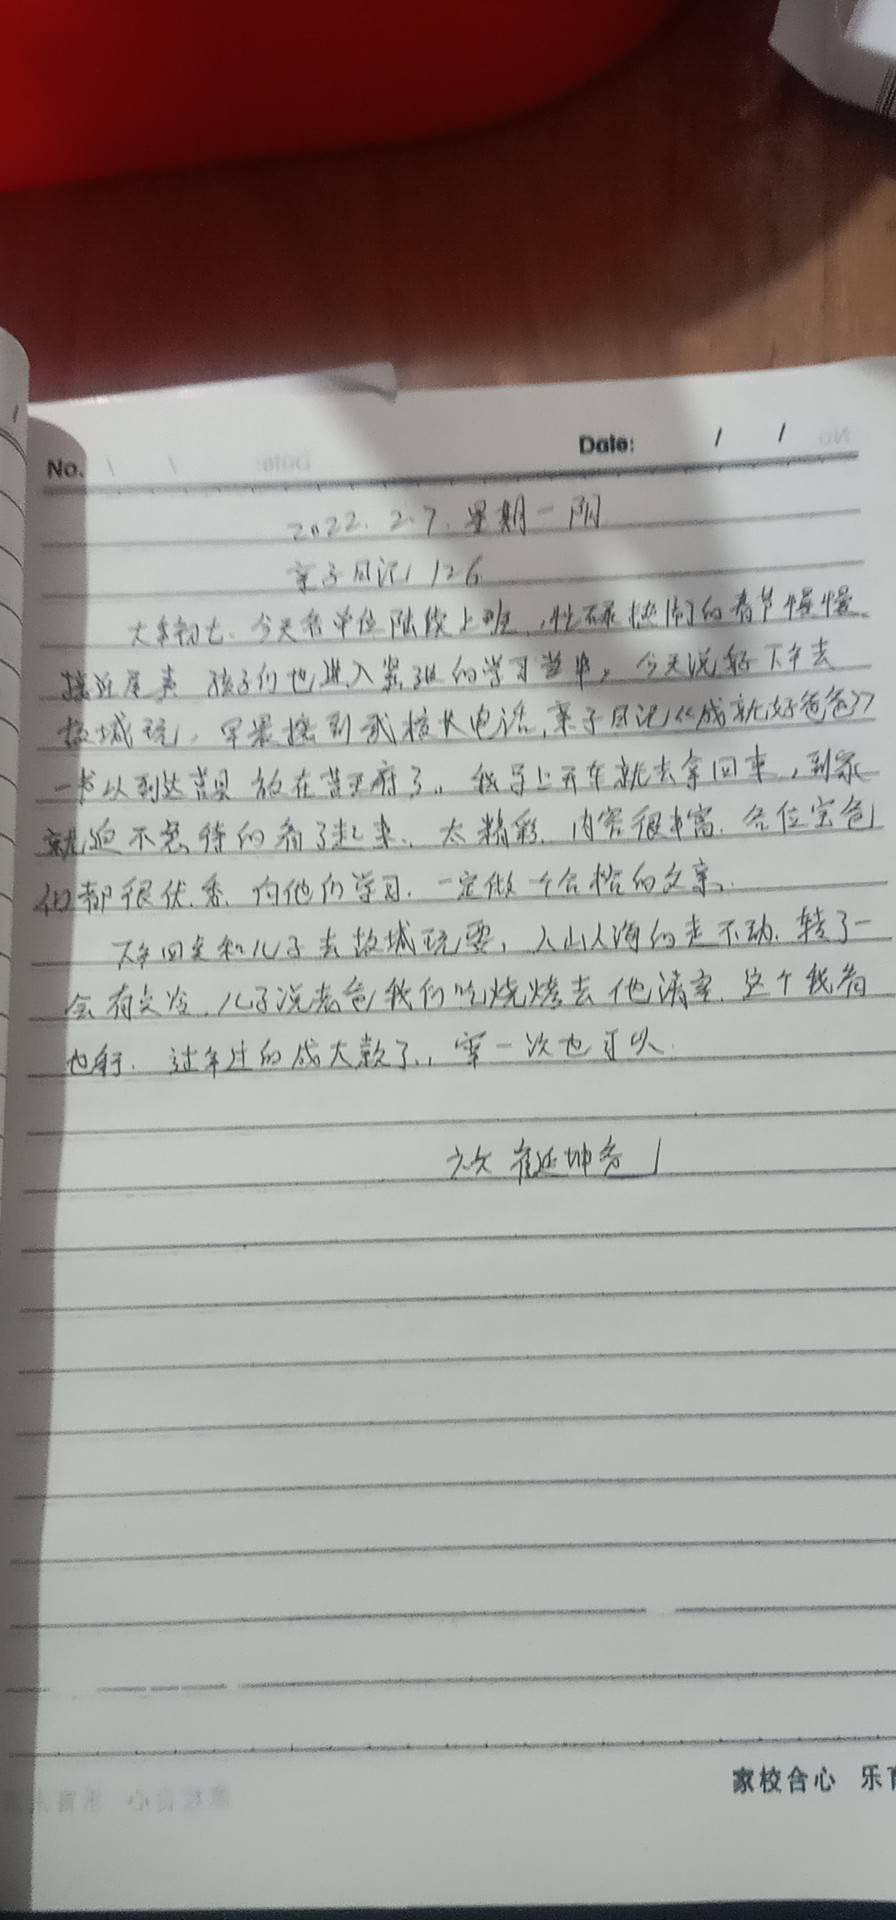 No.
Date: / /
2022.2.7.星期一 阴
亲子日记 126
大年初七.今天各单位陆续上班,忙碌热闹的春节慢慢
接近尾声 孩子们也进入紧张的学习当中,今天说好下午去
故城玩,早晨接到武校长电话,亲子日记《成就好爸爸》
一书以到达 放在 府了。我马上开车就去拿回来,到家
就迫不急待的看了起来、太精彩.内容很丰富.各位宝爸
们都很优秀.向他们学习.一定做一个合格的父亲。
下午回来和儿子去故城玩耍,人山人海的走不动.转了一
会有点冷.儿子说老爸我们吃烧烤去他请客.这个我看
也行.过年过的成大款了,宰一次也可以.
家校合心 乐